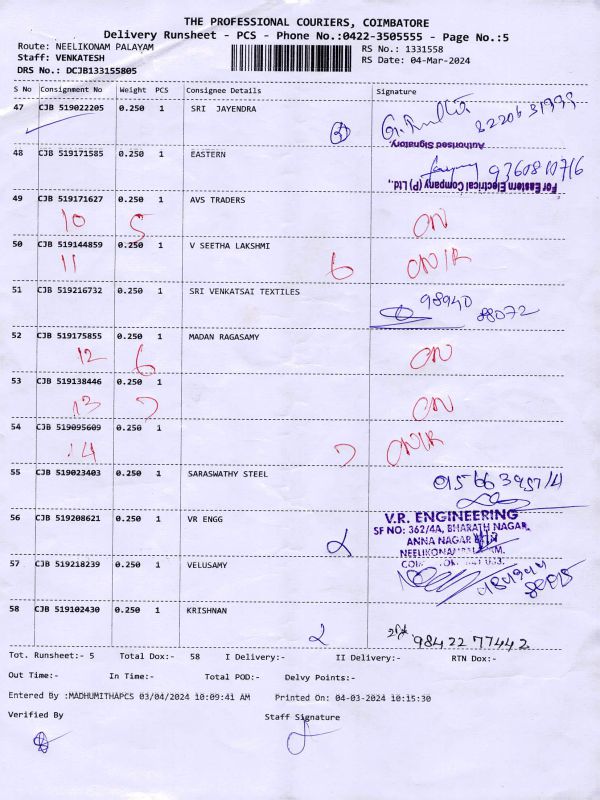 THE PROFESSIONAL COURIERS, COIMBATORE
Delivery Runsheet - PCS - Phone No.:0422-3505555 - Page No.:5
Route: NEELIKONAM PALAYAM
RS No.: 1331558
Staff: VENKATESH
RS Date: 04-Mar-2024
DRS No.: DCJB133155805
S No Consignment No Weight PCS Consignee Details Signature
47 CJB 519022205 0.250 1 SRI JAYENDRA
Authorised Signatory.
48 CJB 519171585 0.250 1 EASTERN
9360810716
For Eastern Electrical Company (P) Ltd.,
49 CJB 519171627 0.250 1 AVS TRADERS
10 5 ON
50 CJB 519144859 0.250 1 V SEETHA LAKSHMI
11 6 ON/R
51 CJB 519216732 0.250 1 SRI VENKATSAI TEXTILES
98940
88072
52 CJB 519175855 0.250 1 MADAN RAGASAMY
12 6 ON
53 CJB 519138446 0.250 1
13 7 ON
54 CJB 519095609 0.250 1
14 7 ON/R
55 CJB 519023403 0.250 1 SARASWATHY STEEL
56 CJB 519208621 0.250 1 VR ENGG
V.R. ENGINEERING
SF NO: 362/4A, BHARATH NAGAR,
ANNA NAGAR
57 CJB 519218239 0.250 1 VELUSAMY
58 CJB 519102430 0.250 1 KRISHNAN
2
98422 77442
Tot. Runsheet:- 5 Total Dox:- 58 I Delivery:- II Delivery:- RTN Dox:-
Out Time:- In Time:- Total POD:- Delvy Points:-
Entered By :MADHUMITHAPCS 03/04/2024 10:09:41 AM Printed On: 04-03-2024 10:15:30
Verified By Staff Signature